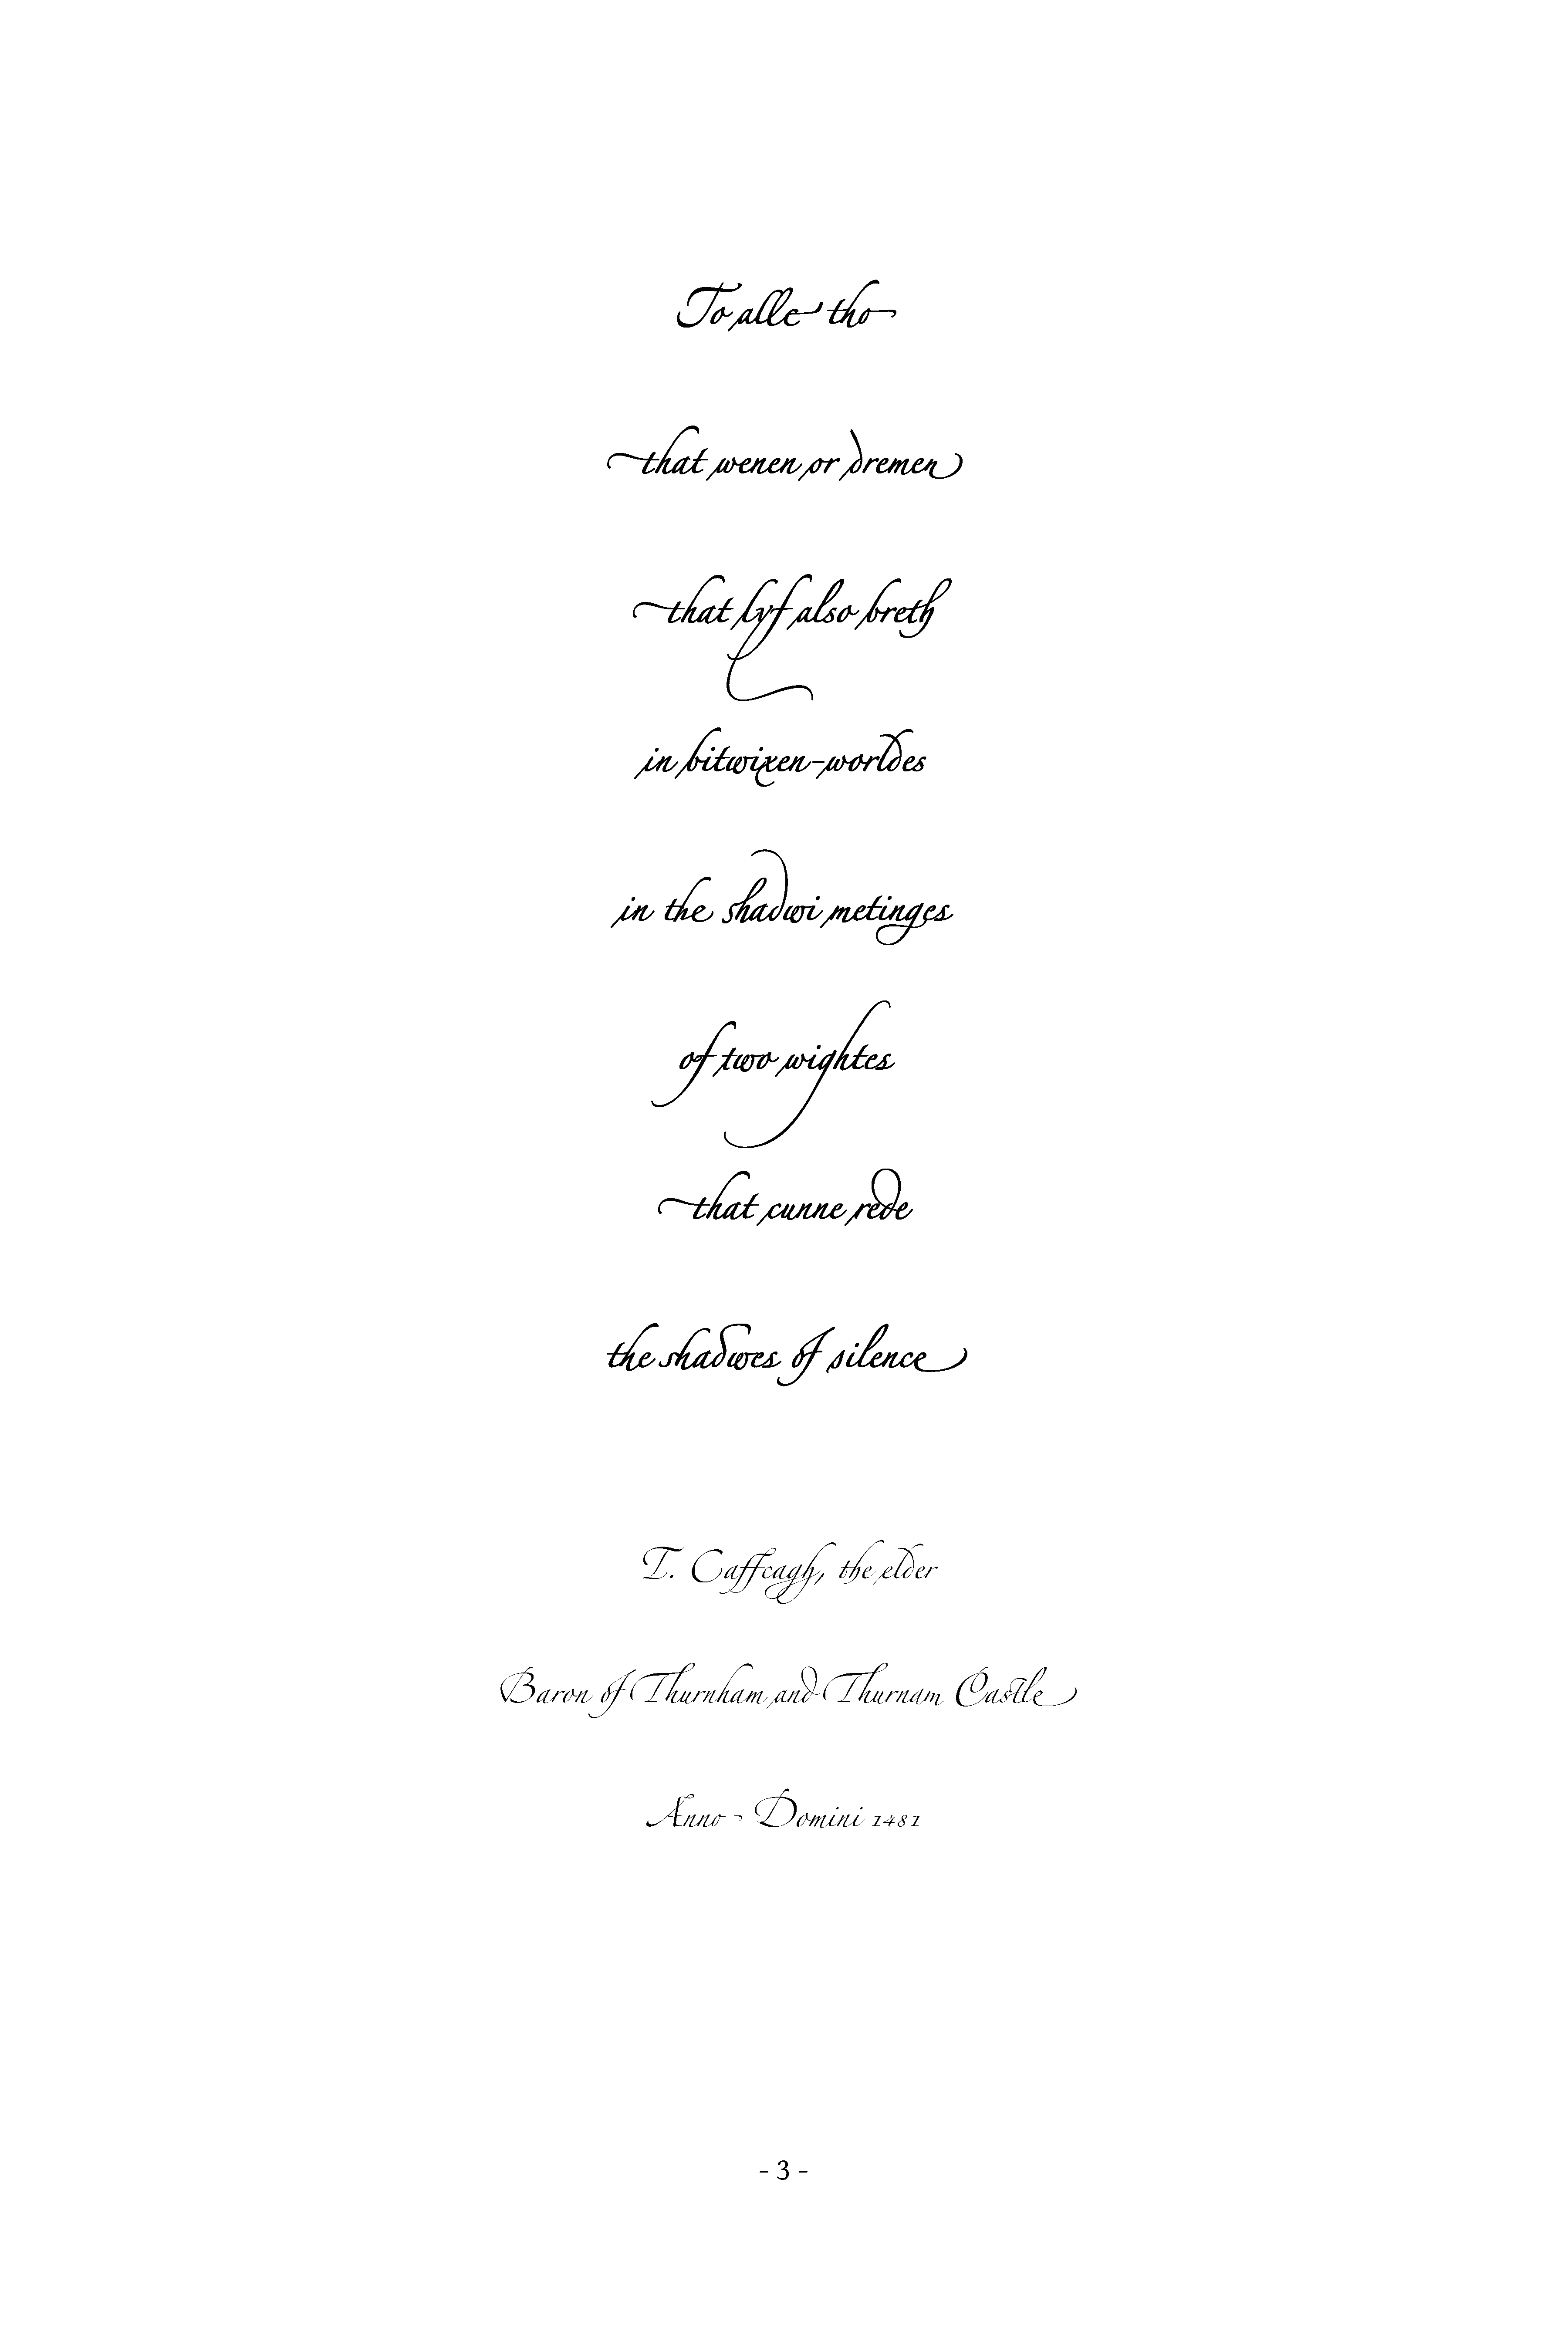 To alle tho
that wenen or dremen
that lyf also breth
in bitwixen-worldes
in the shadwi metinges
of two wightes
that cunne rede
the shadwes of silence
T. Caffcagh, the elder
Baron of Thurnham and Thurnam Castle
Anno Domini 1481
- 3 -